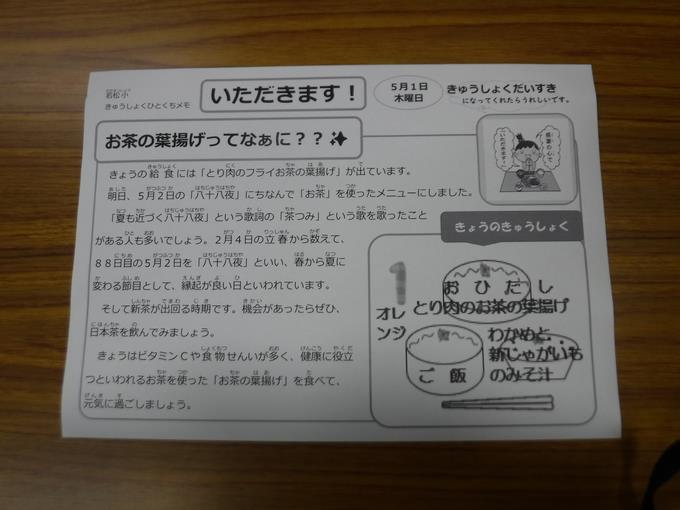 若松小
きゅうしょくひとくちメモ
いただきます！
５月１日
木曜日
きゅうしょくだいすき
になってくれたらうれしいです。
お茶の葉揚げってなぁに？？✨
感謝の心で
いただきます！
きょうの給食には「とり肉のフライお茶の葉揚げ」が出ています。
明日、５月２日の「八十八夜」にちなんで「お茶」を使ったメニューにしました。
「夏も近づく八十八夜」という歌詞の「茶つみ」という歌を歌ったこと
がある人も多いでしょう。２月４日の立春から数えて、
８８日目の５月２日を「八十八夜」といい、春から夏に
変わる節目として、縁起が良い日といわれています。
そして新茶が出回る時期です。機会があったらぜひ、
日本茶を飲んでみましょう。
きょうはビタミンＣや食物せんいが多く、健康に役立
つといわれるお茶を使った「お茶の葉揚げ」を食べて、
元気に過ごしましょう。
きょうのきゅうしょく
おひだし
とり肉のお茶の葉揚げ
オレ
ンジ
わかめと
新じゃがいも
のみそ汁
ご飯